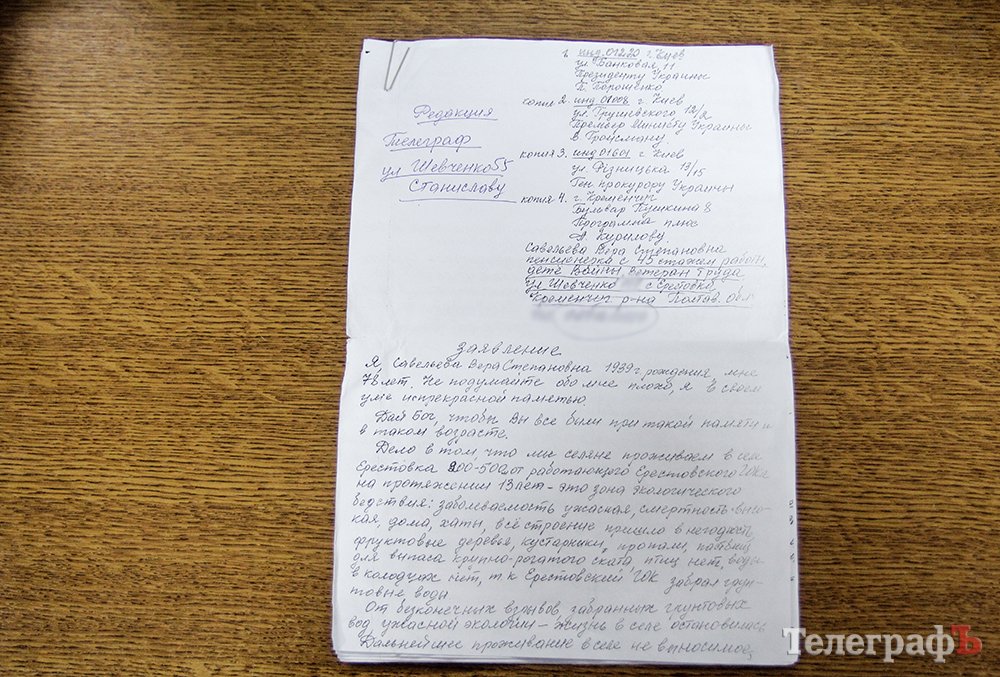 1. инд. 01220 г. Киев
ул Банковая, 11
Президенту Украины
П. Порошенко
копия 2. инд 01008 г. Киев
ул. Грушевского 12/2
Премьер Министу Украины
В Гройсману.
копия 3. инд 01601 г Киев
ул. Різницька 13/15
Ген прокурору Украины
копия 4. г. Кременчуг
Бульвар Пушкина 8
Программа плюс
Курилову.
Редакция
Телеграф
ул Шевченко 55
Станиславу
Савельева Вера Степановна
пенсионерка с 45 стажем работы,
дете Войны Ветеран Труда
ул Шевченко с Еристовка
Кременчуг р-на Полтав. обл
Заявление
Я, Савельева Вера Степановна 1939г рождения мне
78 лет. Не подумайте обо мне плохо, я в своем
уме и прекрасной паметью.
Дай Бог, чтобы Вы все были при такой памяти и
в таком возрасте.
Дело в том, что мы селяне проживаем в селе
Еристовка 200-500 от работающего Еристовского ГОКа
на протяжении 13 лет - это зона экологического
бедствия: забалеваемость ужасная, смертность высо-
кая, дома, хаты, всё строение пришло в негодность,
фруктовые деревья, кустарники, пропали, пастбищ
для выпаса крупно-рогатого ската птиц нет, воды
в колодцах нет, т к Еристовский ГОК забрал грун-
товые воды.
От безконечных взрывов, забранных грунтовых
вод ужасной экологии - жизнь в селе остановилась
Дальнейшее проживание в селе не выносимое,
ТелеграфЪ